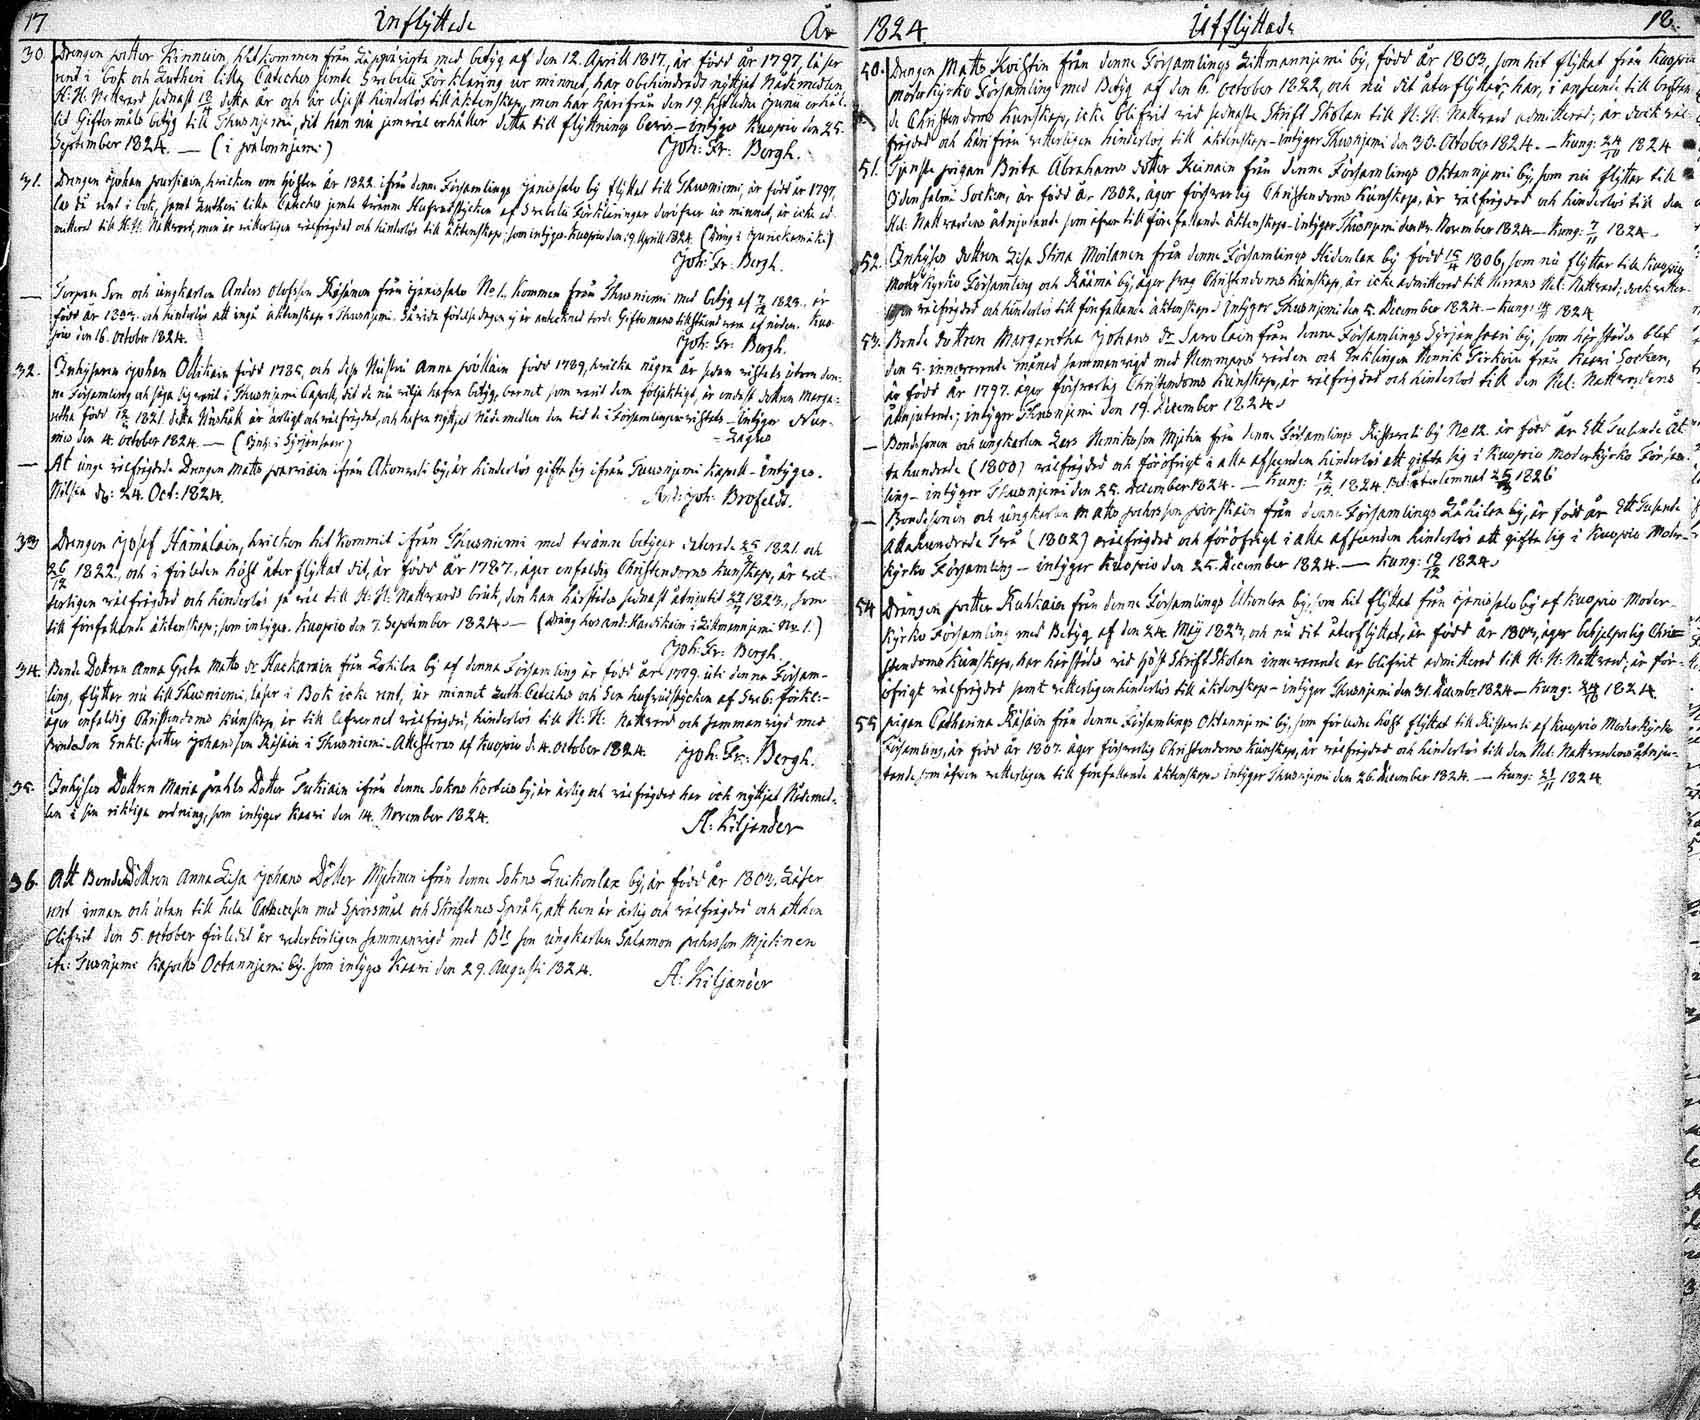 17 Inflyttade År
30. Drengen petter Kinnuin hitkommen från Lappvirta med betyg af den 12. Aprill 1817, är född år 1797, läser
rent i bok och Lutheri lilla Cateches jemte Svebelii Förklaring ur minnet, har obehindradt nyttjat Nådemedlen
H: H: Nattvard sednast detta år och är eljest hinderlös till äktenskap, men har härifrån den 19. sistledne Juni erhål-
lit Giftermåls betyg till Thusnjemi, dit han nu jemväl erhåller detta till flyttnings bevis – intygas Kuopio den 25.
September 1824. — (i palonnjemi) Joh: Fr: Bergh.
31. Drengen Johan pursiain, hvilken om hösten år 1822. ifrån denne Församlings Jänissalo by flyttat till Thusniemi, är född år 1797,
läser rent i bok, samt Lutheri lilla Cateches jemte tvänne Hufvudstycken af Svebelii Förklaringar deröfver ur minnet, är icke ad-
mitterad till H: H: Nattvard, men är vitterligen välfrägdad och hinderlös till äktenskap; som intygas Kuopio den 19. Aprill 1824.
Joh: Fr: Bergh.
— Torpare Son och ungkarlen Anders Olofsson Räsänen från Jänissalo No 1. kommen från Thusniemi med betyg af 1823. är
född år 1803. och hinderlös att ingå äktenskap i Thusnjemi. Kuo-
pio den 16. October 1824. Joh: Fr: Bergh.
32. Inhysaren Johan Ollikain född 1785, och dess Hustru Anna född 1789, hvilka några år sedan vistats utom den-
ne Församling och säga sig varit i Thusnjemi Capell, dit de nu vilja hafva betyg, barnet som varit dem följaktigt, är endast dottren Marga-
retha född 1821. detta Hushåll är ärligt och välfrägdad, och hafva nyttjat Nådemedlen den tid de i Församlingen vistats – Intygar Nur-
mes den 4. October 1824. — (Inh: i Syrjensaar) Zaghes
— At unge välfrägdade Drengen Matts ifrån Akonveli by, är hinderlös gifta sig ifrån Tuusnjemi Kapell – intygas.
Nilsiä d: 24. Oct: 1824. And: Joh: Brofeldt.
33 Drengen Josef Hämäläin, hvilken hit kommit ifrån Thusniemi med tvänne betyger daterade 1821. och
26/12 1822., och i förleden höst åter flyttat dit, är född år 1787., äger enfaldig Christendoms kunskap, är vit-
terligen välfrägdad och hinderlös så väl till H: H: Nattvards bruk, den han härstädes sednast åtnjutit 1823., som
till förefallande äktenskap; som intygas. Kuopio den 7. September 1824. — (dräng hos And: Kardikain i Littmannjemi No 1.)
Joh: Fr: Bergh.
34. Bonde Dottren Anna Greta Matts dr Hackarain från Lohilax by af denna Församling är född år 1779. uti denna Försam-
ling, flyttar nu till Thusniemi, läser i Bok icke rent, ur minnet Luth. Cateches och Sex hufvudstycken af Sveb: förkl: –
äger enfaldig Christendoms kunskap, är till lefvernet välfrägdad, hinderlös till H: H: Nattvard och sammanvigd med
bondeson Enkl: petter Johansson Räsäin i Thusniemi. Attesteras af Kuopio d: 4. October 1824. Joh: Fr: Bergh.
35. Inhyses Dottren Maria påhls Dotter Tuckiain ifrån denne Sokns Kortesis by, är ärlig och välfrägdad har ock nyttjat Nådemed-
len i sin riktiga ordning, som intygar Kaavi den 14. November 1824. A: Kiljander
36. Att Bondedottren Anna Lisa Johans Dotter Mjetinen ifrån denne Sokns Luikonlax by, är född år 1803. Läser
rent innan och utan till hela Cathecesen med Spörsmål och Skriftenes Språk, att hon är ärlig och välfrägdad och att hon
blifvit den 5. October förledit år vederbörligen sammanvigd med Bds son ungkarlen Salamon pehrsson Mjetinen
ifr: Tusnjemi Kapells Octannjemi by. som intygas Kaavi den 29. Augusti 1824. A: Kiljander
1824. Utflyttade 18.
50. Drengen Matts Kvistin från denne Församlings Littmannjemi by, född år 1803, som hit flyttat från Kuopio
moderkyrko Församling med Betyg af den 6. October 1822, och nu dit återflyttar, har, i anseende till bristan-
de Christendoms kunskap, icke blifvit vid sednaste Skrift Skolan till H: H: Nattvard admitterad; är dock väl-
frägdad och härifrån vetterligen hinderlös till äktenskap – intygar Thusnjemi den 30. October 1824. — Kung: 24/10 1824
51. Tjenste pigan Brita Abrahams dotter Keinain från denne Församlings Oktannjemi by, som nu flyttar till
Idensalmi Socken, är född år 1802, äger försvarlig Christendoms kunskap, är välfrägdad och hinderlös till den
Hel. Nattvardens åtnjutande som äfven till förefallande äktenskap – intygar Thusnjemi den 14. November 1824 — Kung: 7/11 1824.
52. Inhyses dottren Lisa Stina Moilanen från denne Församlings Hidenlax by född 1806, som nu flyttar till Kuopio
Moder Kyrko Församling och Räämä by, äger svag Christendoms kunskap, är icke admitterad till Herrans Hel: Nattvard; dock vetter-
ligen välfrägdad och hinderlös till förefallande äktenskap – intygar Thusnjemi den 5. December 1824. — Kung: 1824
53. Bonde dottren Margaretha Johans dr Savolain från denne Församlings Syrjensaari by, som härstädes blef
den 5. innevarande månad sammanvigd med Nemmans verden och Enklingen Henrik Tirkoin från Kaavi Socken,
är född år 1797. äger försvarlig Christendoms kunskap, är välfrägdad och hinderlös till den Hel: Nattvardens
åtnjutande; intygar Thusnjemi den 19. December 1824.
— Bondesonen och ungkarlen Lars Henriksson Mjetin från denne Församlings Ristveli by No 12. är född år Ett Tusende Åt-
ta hundrade (1800) välfrägdad och föröfrigt i alla afseenden hinderlös att gifta sig i Kuopio Moderkyrko Försam-
ling – intygar Thusnjemi den 25. December 1824. — Kung: 12/12 1824. Bet: återlemnat 1826
— Bondesonen och ungkarlen Matts pehrsson från denne Församlings Lähilax by, är född år Ett Tusende
Åttahundrade Två (1802) välfrägdad och föröfrigt i alla afseenden hinderlös att gifta sig i Kuopio Moder-
kyrko Församling – intygar Kuopio den 25. December 1824. — Kung: 12/12 1824.
54 Drängen petter Ruhkain från denne Församlings Ukonlax by, som hit flyttat från Jänissalo by af Kuopio Moder-
kyrko Församling med Betyg af den 24. Maij 1823, och nu dit återflyttat, är född år 1803, äger behjelpelig Chri-
stendoms kunskap, har härstädes vid höst Skrift Skolan innevarande år blifvit admitterad till H: H: Nattvard; är för-
öfrigt välfrägdad samt vetterligen hinderlös till äktenskap – intygar Thusnjemi den 31. December 1824 — Kung: 1824.
55 pigan Catharina Räsäin från denne Församlings Oktannjemi by, som förledne höst flyttat till Ristveli af Kuopio Moderkyrko
Församling, är född år 1807. äger försvarlig Christendoms kunskap, är välfrägdad och hinderlös till den Hel: Nattvardens åtnju-
tande, som äfven vetterligen till förefallande äktenskap – intygar Thusnjemi den 26. December 1824. — Kung: 21/11 1824